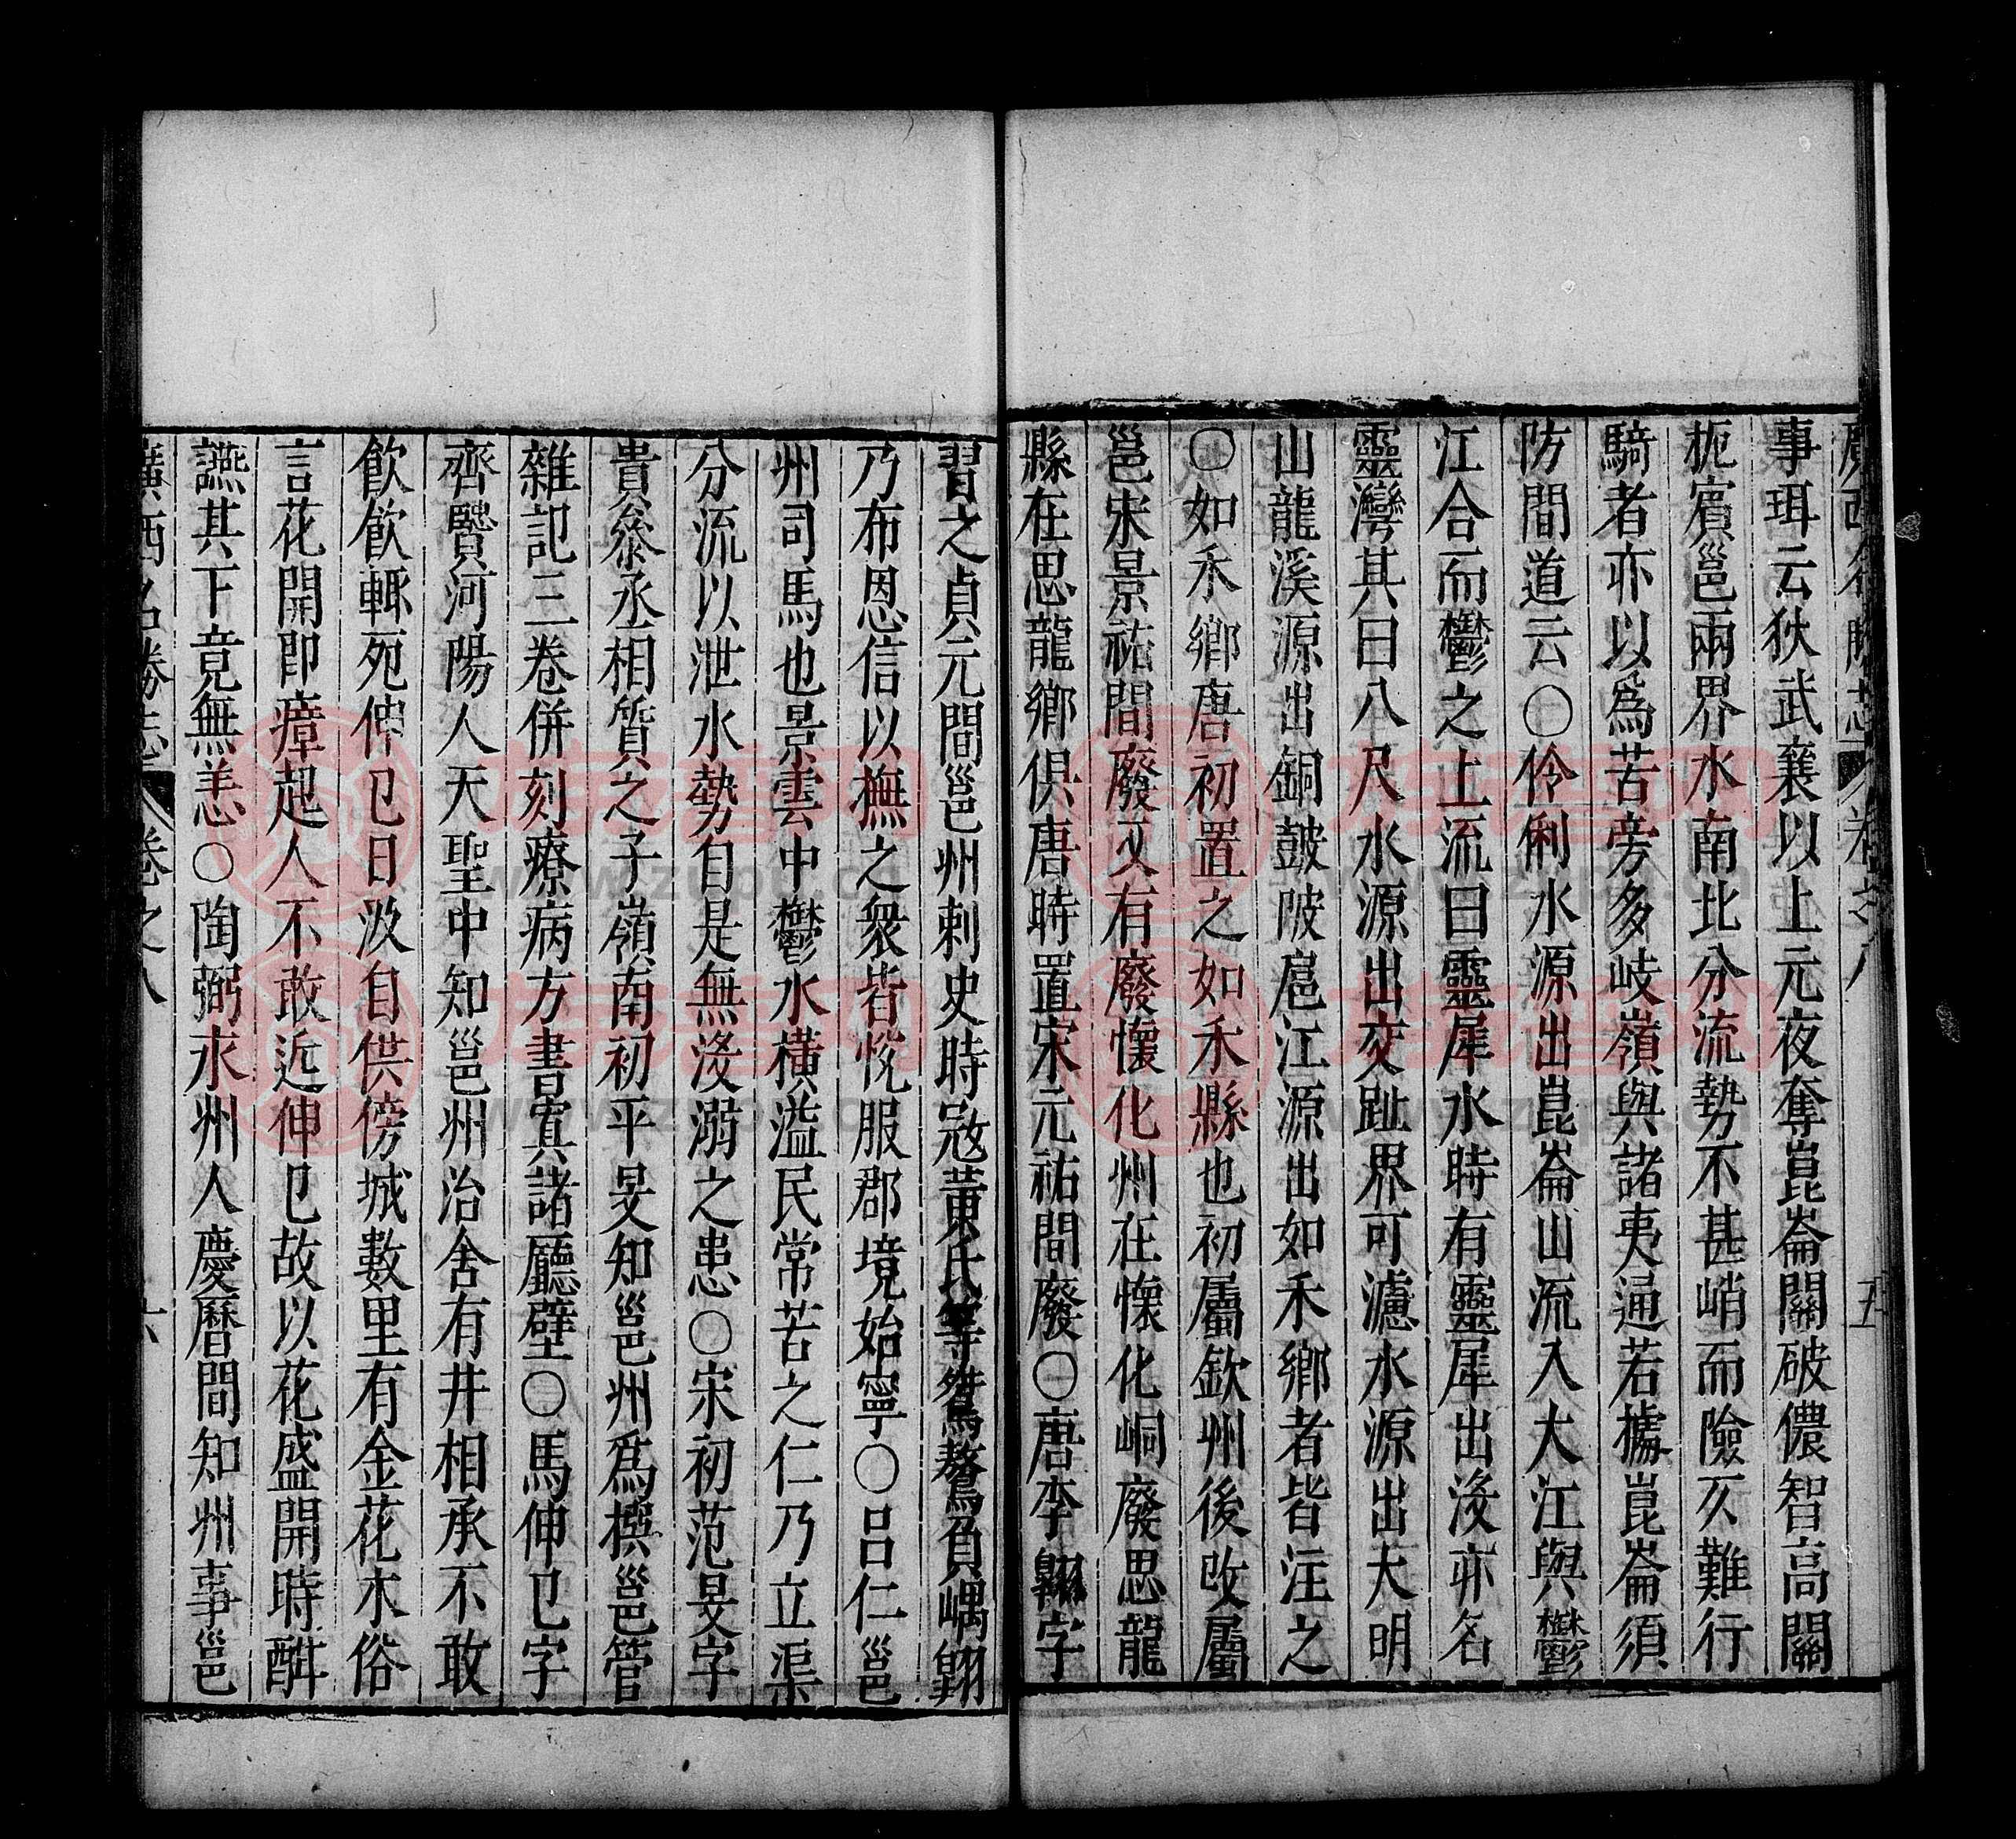 廣西名勝志 卷之八 五
事珥云狄武襄以上元夜奪崑崙關破儂智高關
扼賓邕兩界水南北分流勢不甚峭而險仄難行
騎者亦以爲苦旁多岐嶺與諸夷通若據崑崙須
防間道云○伶俐水源出崑崙山流入大江與鬱
江合而鬱之上流曰靈犀水時有靈犀出沒亦名
靈灣其曰八尺水源出交趾界可瀘水源出大明
山龍溪源出銅鼓陂扈江源出如禾鄉者皆注之
○如禾鄉唐初置之如禾縣也初屬欽州後改屬
邕宋景祐間廢又有廢懷化州在懷化峒廢思龍
縣在思龍鄉俱唐時置宋元祐間廢○唐李翱字
習之貞元間邕州刺史時寇黃氏等鴛驁負嵎翱
乃布恩信以撫之衆皆悅服郡境始寧○呂仁邕
州司馬也景雲中鬱水橫溢民常苦之仁乃立渠
分流以泄水勢自是無沒溺之患○宋初范旻字
貴叅丞相質之子嶺南初平旻知邕州爲撰邕管
雜記三卷併刻療病方書寘諸廳壁○馬伸巳字
齊賢河陽人天聖中知邕州治舍有井相承不敢
飲飲輒死伸巳日汲自供傍城數里有金花木俗
言花開即瘴起人不敢近伸巳故以花盛開時酣
讌其下竟無恙○陶弼永州人慶曆間知州事邕
廣西名勝志 卷之八 六
族譜网
www.zupu.cn
族譜网
www.zupu.cn
族譜网
www.zupu.cn
族譜网
www.zupu.cn